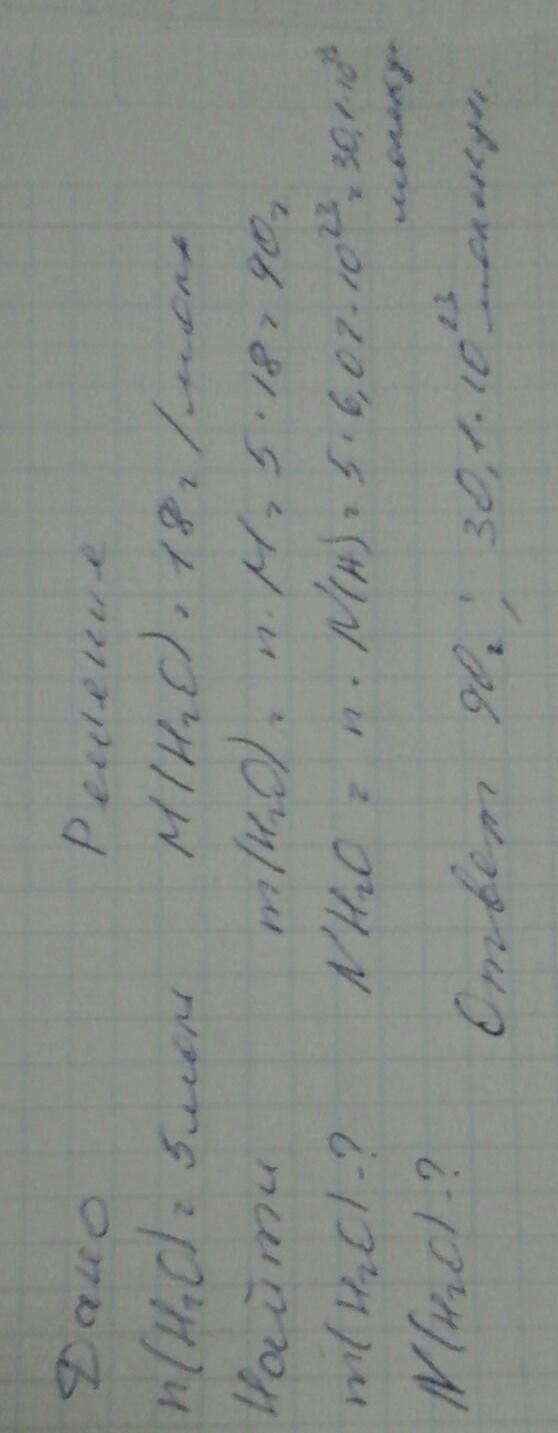 Дано
n(H2O) = 5 моль
Найти
m(H2O) - ?
N(H2O) - ?
Решение
M(H2O) = 18 г/моль
m(H2O) = n · M = 5 · 18 = 90г
N H2O = n · N(A) = 5 · 6,02 · 10^23 = 30,1 · 10^23
молекул
Ответ 90г; 30,1 · 10^23 молекул.